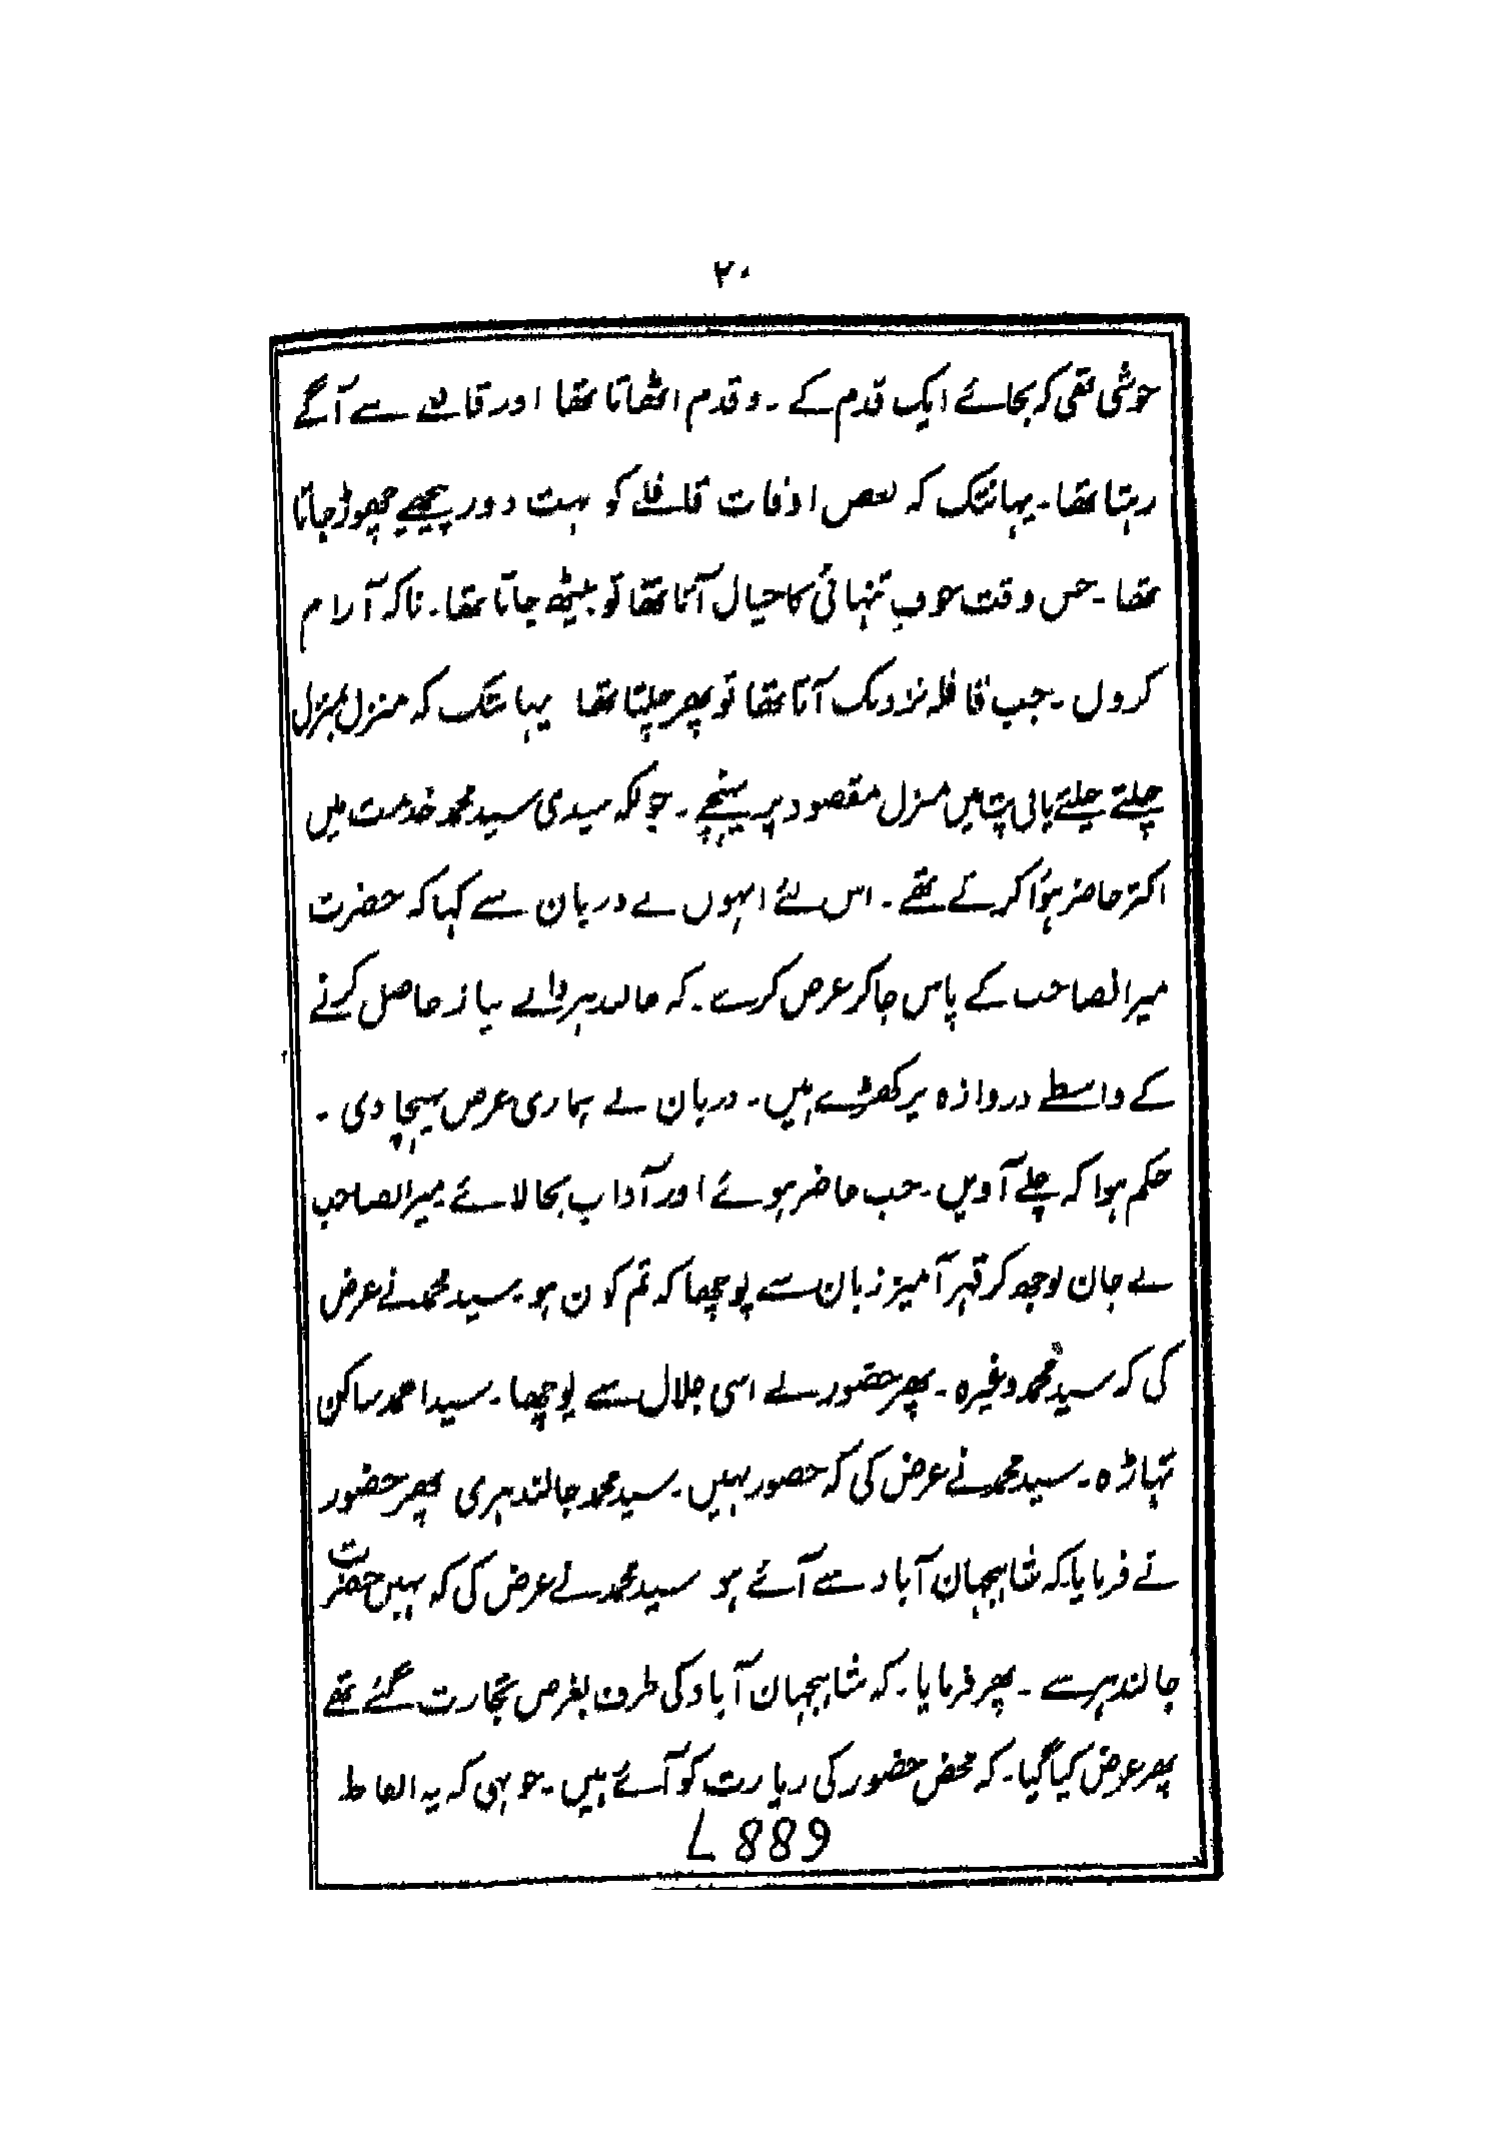 ۲۰
خوشی تھی کہ بجائے ایک قدم کے۔ دو قدم اٹھاتا تھا اور قافلے سے آگے
رہتا تھا۔ یہانتک کہ بعض اوقات قافلے کو بہت دور پیچھے چھوڑ جاتا
تھا۔ جس وقت خوف تنہائی کا خیال آتا تھا تو بیٹھ جاتا تھا۔ تاکہ آرام
کروں۔ جب قافلہ نزدیک آتا تھا تو پھر چلتا تھا یہانتک کہ منزل بمنزل
چلتے چلتے پانی پت میں منزل مقصود پر پہنچے۔ چونکہ سیدی سید محمد خدمت میں
اکثر حاضر ہؤا کرتے تھے۔ اس لئے انہوں نے دربان سے کہا کہ حضرت
میرانصاحب کے پاس جا کر عرض کرے۔ کہ جالندہر والے نیاز حاصل کرنے
کے واسطے دروازہ پر کھڑے ہیں۔ دربان نے ہماری عرض پہنچا دی۔
حکم ہوا کہ چلے آویں۔ جب حاضر ہوئے اور آداب بجا لائے میرانصاحب
نے جان بوجھ کر قہر آمیز زبان سے پوچھا کہ تم کون ہو۔ سید محمد نے عرض
کی کہ سید محمد وغیرہ۔ پھر حضور نے اسی جلال سے پوچھا۔ سید احمد ساکن
تہاڑہ۔ سید محمد نے عرض کی کہ حضور نہیں۔ سید محمد جالندہری پھر حضور
نے فرمایا کہ شاہجہان آباد سے آئے ہو سید محمد نے عرض کی کہ نہیں حضرت
جالندہر سے۔ پھر فرمایا۔ کہ شاہجہان آباد کی طرف بغرض تجارت گئے تھے
پھر عرض کیا گیا۔ کہ محض حضور کی زیارت کو آئے ہیں۔ جوہی کہ یہ الفاظ
L 889